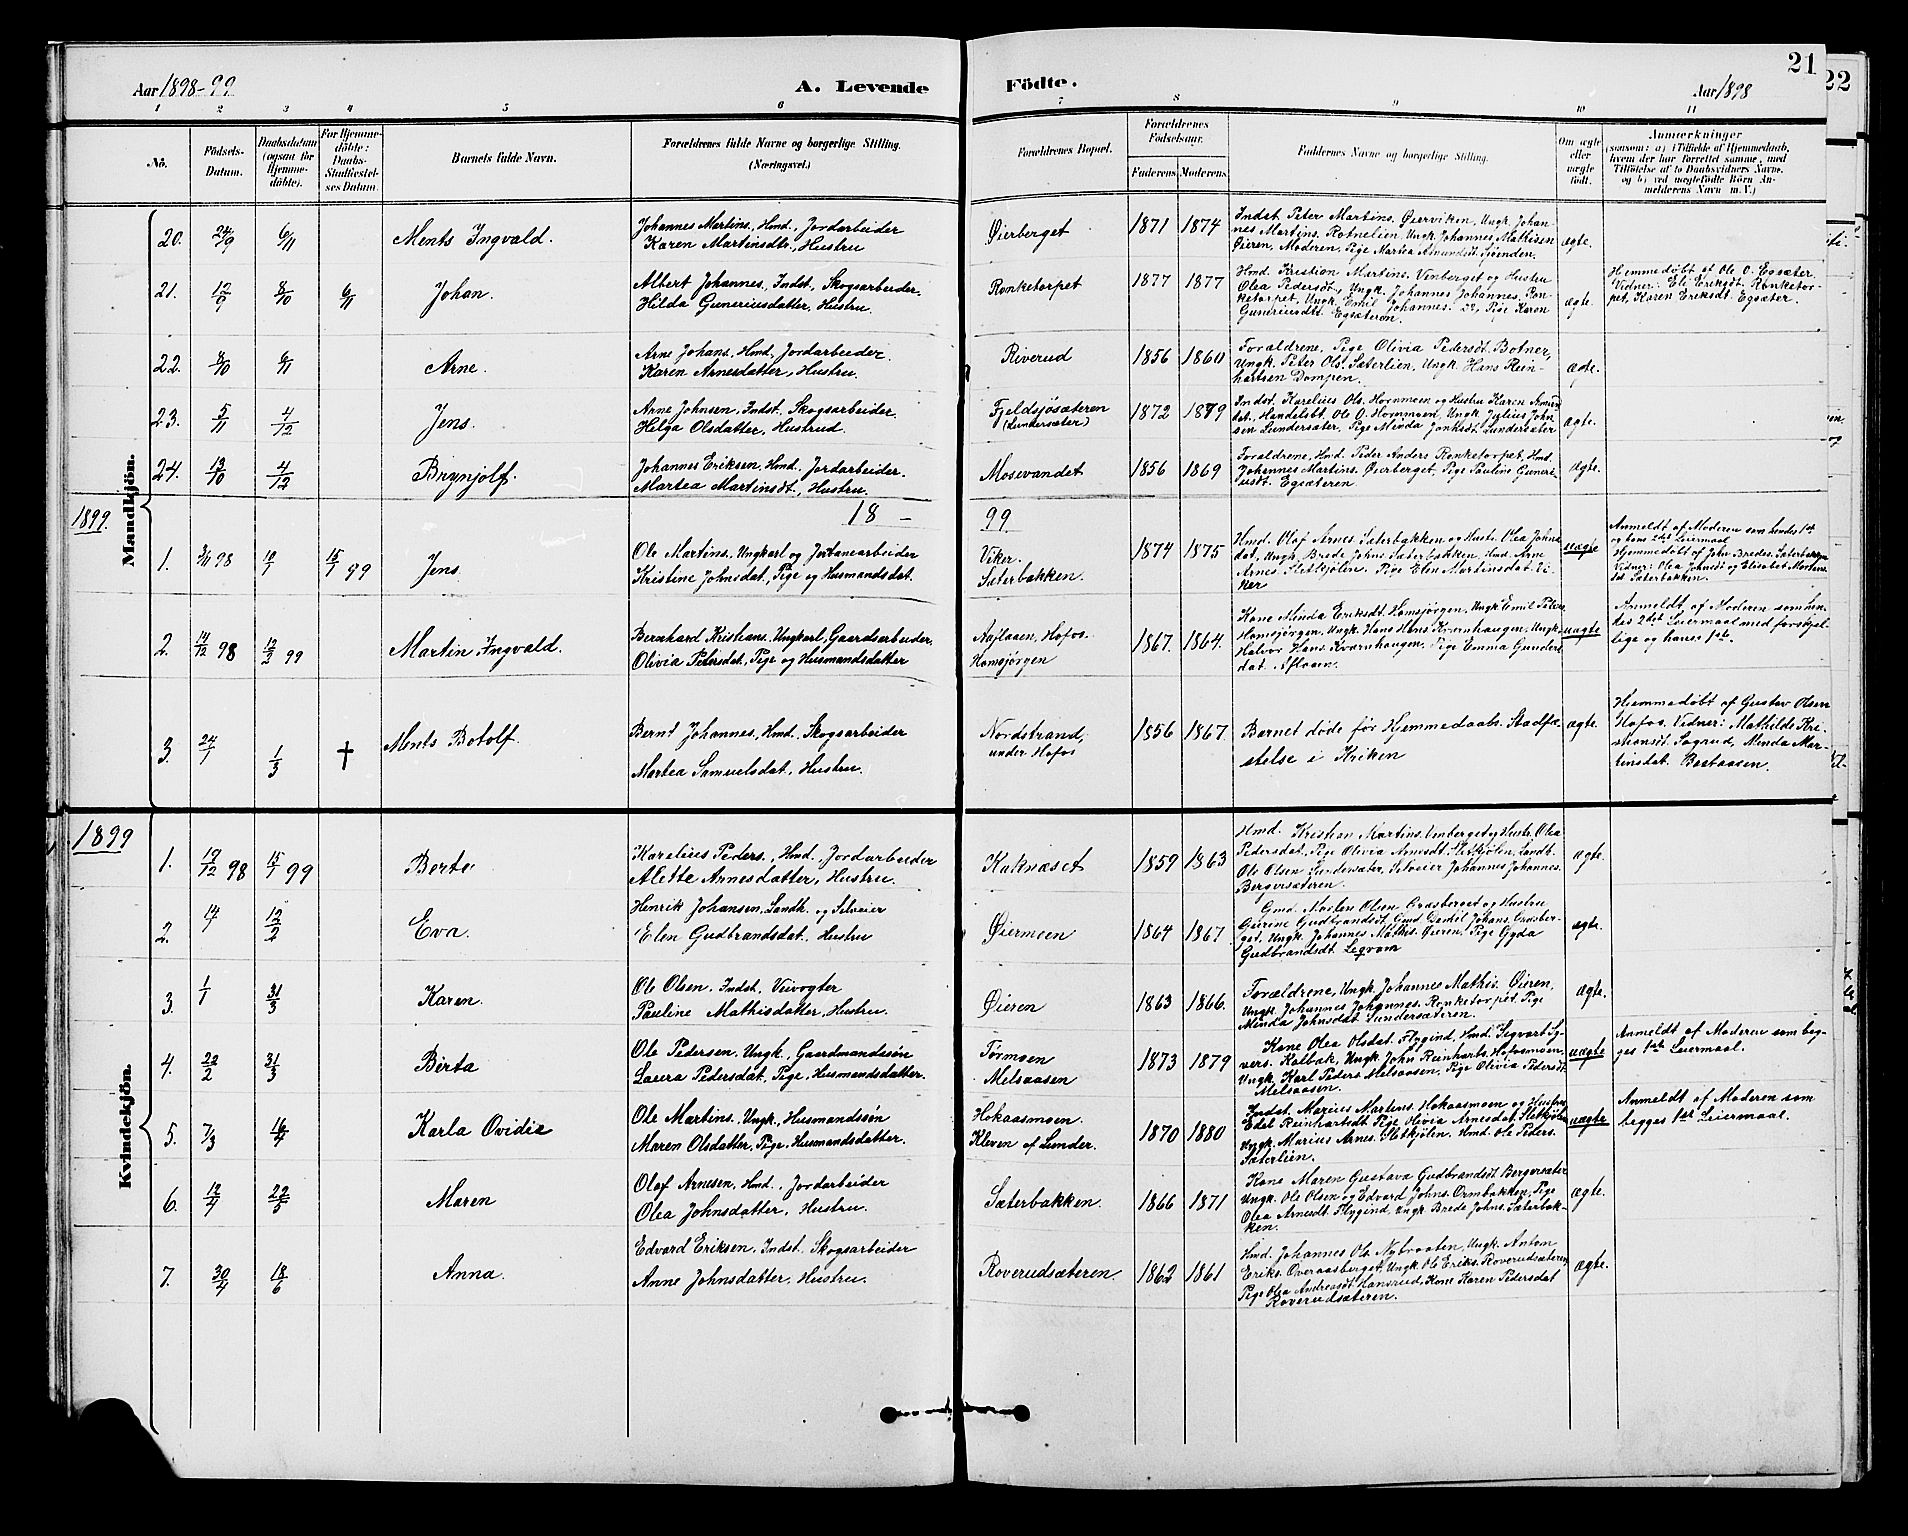 21
22
Aar 1898-99
A. Levende
Födte.
Aar 1898
1 2 3 4 5 6 7 8 9 10 11
No.
Födsels-
Datum.
Daabsdatum
(ogsaa for
Hjemme-
döbte).
For Hjemme-
döbte:
Daabs-
Stadfæstel-
ses Datum.
Barnets fulde Navn.
Forældrenes fulde Navne og borgerlige Stilling.
(Næringsvei.)
Forældrenes Bopæl.
Forældrenes
Födselsaar.
Faderens. Moderens.
Faddernes Navne og borgerlige Stilling.
Om ægte
eller
uægte
födt.
Anmærkninger
(saasom: a) i Tilfælde af Hjemmedaab,
hvem der har forrettet samme, med
Tilföielse af to Daabsvidners Navne,
og b) ved uægtefödte Börn An-
melderens Navn m. V.)
Mandkjön.
20. 24/9 6/11 Ments Ingvald.
Johannes Martins., Hmd., Jordarbeider
Karen Martinsdtr., Hustru
Øierberget 1871 1874
Indst. Peter Martins. Øierviken, Ungk. Johan-
nes Martins. Rotnelien, Ungk. Johannes Mathisen
Øieren, Moderen, Pige Martea Amundsdt. Sjøenden.
ægte.
21. 12/9 8/10 6/11 Johan.
Albert Johannes., Indst. Skogsarbeider.
Hilda Guneriusdatter, Hustru.
Rønketorpet 1877 1877
Hmd. Kristian Martins. Vinberget og Hustru
Olea Pedersdt., Ungk. Johannes Johannes. Røn-
ketorpet, Ungk. Emil Johannes. Do, Pige Karen
Guneriusdt. Egsæteren.
ægte.
Hjemmedøbt af Ole O. Egsæter.
Vidner: Eli Eriksdt. Rønketor-
pet, Karen Eriksdt. Egsæter.
22. 8/10 6/11 Arne.
Arne Johans., Hmd., Jordarbeider.
Karen Arnesdatter, Hustru.
Riverud 1856 1860
Forældrene, Pige Olivia Pedersdt. Botner,
Ungk. Peter Ols. Sæterlien, Ungk. Hans Rein-
hartsen Dompen.
ægte.
23. 5/11 4/12 Jens.
Arne Johnsen, Indst. Skogsarbeider.
Helga Olsdatter, Hustrud.
Fjeldsjøsæteren
(Lundersæter)
1872 1879
Indst. Karelius Ols. Hornmoen og Hustru Karen Amun-
dsdt., Handelsbt. Ole O. Hornmoen, Ungk. Julius John-
sen Lundersæter, Pige Minda Johnsdt. Lundersæter
ægte.
24. 13/10 4/12 Brynjolf.
Johannes Eriksen, Hmd. Jordarbeider.
Martea Martinsdt., Hustru.
Mosevandet 1856 1869
Forældrene, Hmd. Peder Anders. Rønketorpet, Hmd.
Johannes Martins. Øierberget, Pige Pauline Guneri-
usdt. Egsæteren
ægte.
1899.
18 - 99
1. 3/11 98 10/1 15/1 99 Jens.
Ole Martins., Ungkarl og Jernbanearbeider
Kristine Johnsdat., Pige og Husmandsdat.
Viker.
Sæterbakken.
1874 1875
Hmd. Olaf Arnes. Sæterbakken og Hustr. Olea Johns-
dat., Ungk. Brede Johns. Sæterbakken, Hmd. Arne
Arnes. Sletkjølen, Pige Elen Martinsdat. Vi-
ker
uægte
Anmeldt af Moderen som hendes 1ste
og hans 2det Leiermaal
Hjemmedøbt af John Bredes. Sæterbakken
Vidner: Olea Johnsdt. og Elisabet Martins-
dt. Sæterbakken.
2. 14/12 98 12/2 99 Martin Ingvald.
Bernhard Kristians., Ungkarl, Gaardsarbeider.
Olivia Petersdat., Pige og Husmandsdatter
Aaflaaen, Hofos.
Homsjørgen
1867. 1864.
Kone Minda Eriksdt. Homsjørgen, Ungk. Emil Peters.
Homsjørgen, Ungk. Hans Hans. Kværnhaugen, Ungk.
Halvor Hans. Kværnhaugen, Pige Emma Gunders-
dat. Afloaen.
uægte
Anmeldt af Moderen som hen-
des 2det Leiermaal med forskjel-
lige og hans 1ste.
3. 24/1 1/3 † Ments Botolf.
Bernt Johannes., Hmd. Skogsarbeider
Martea Samuelsdat., Hustru.
Nordstrand,
under Hofos
1856 1867
Barnet døde før Hjemmedaabs. Stadfæ-
stelse i Kirken
ægte.
Hjemmedøbt af Gustav Olsen
Hofos. Vidner: Mathilde Kri-
stiansdt. Sagrud, Minda Mar-
tinsdat. Bastaasen.
1899
Kvindekjön.
1. 19/12 98 15/1 99 Berte
Karelius Peders., Hmd., Jordarbeider
Alette Arnesdatter, Hustru.
Kuknæset 1859 1863
Hmd. Kristian Martins. Vinberget og Hustr. Olea
Pedersdat., Pige Olivia Arnesdt. Sletkjølen, Landh.
Ole Olsen Lundersæter, Selveier Johannes Johannes.
Bergersæteren.
ægte.
2. 14 12/2 Eva.
Henrik Johansen, Landh. og Selveier
Elen Gudbrandsdat., Hustru
Øiermoen 1864 1867
Gmd. Morten Olsen Grasberget og Hustru
Gurine Gudbrandsdt., Gmd. Daniel Johans. Grasber-
get, Ungk. Johannes Mathis. Øieren, Pige Gyda
Gudbrandsdt. Legram
ægte.
3. 1/1 31/3 Karen.
Ole Olsen, Indst. Veivogter
Pauline Mathisdatter, Hustru.
Øieren 1863 1866.
Forældrene, Ungk. Johannes Mathis. Øieren,
Ungk. Johannes Johannes. Rønketorpet, Pige
Minda Johnsdat. Lundersæteren.
ægte.
4. 22/2 31/3 Berta
Ole Pedersen, Ungk. Gaardmandssön
Laura Pedersdat., Pige, Husmandsdatter.
Tørmoen
Melsaasen
1873 1879
Kone Olea Olsdat. Flygind, Hmd. Segvart Sy-
vers. Kalbak, Ungk. John Reinharts. Hofosmoen,
Ungk. Karl Peders. Melsaasen, Pige Olivia Pedersdt.
Melsaasen.
uægte
Anmeldt af Moderen som beg-
ges 1ste Leiermaal.
5. 7/3 16/4 Karla Ovidia
Ole Martins., Ungk., Husmandssön
Maren Olsdatter, Pige, Husmandsdatter.
Hokaasmoen.
Kleven af Lunder.
1870 1880
Indst. Marius Martins. Hokaasmoen og Hustru
Edel Reinhartsdt. Pige Olivia Arnesdat. Sletkjølen
Ungk. Marius Arnes. Sletkjølen, Hmd. Ole Peders.
Sæterlien.
uægte
Anmeldt af Moderen som
begges 1ste Leiermaal.
6. 12/4 22/5 Maren
Olaf Arnesen, Hmd., Jordarbeider
Olea Johnsdatter, Hustru.
Sæterbakken. 1866 1871
Kone Maren Gustava Gudbrandsdt. Bergersæter
Ungk. Ole Olsen og Edvard Johns. Ormbakken, Pige
Olea Arnesdt. Flygind, Ungk. Brede Johns. Sæterbak-
ken.
ægte.
7. 30/4 18/6 Anna.
Edvard Eriksen, Indst. Skogsarbeider
Anne Johnsdatter, Hustru.
Roverudsæteren. 1862 1861
Hmd. Johannes Ols. Nybraaten, Ungk. Anton
Eriks. Overaasberget, Ungk. Ole Eriks. Roverudsæteren
Pige Olea Andreasdt. Hansrud, Kone Karen Pedersdat
Roverudsæteren.
ægte.